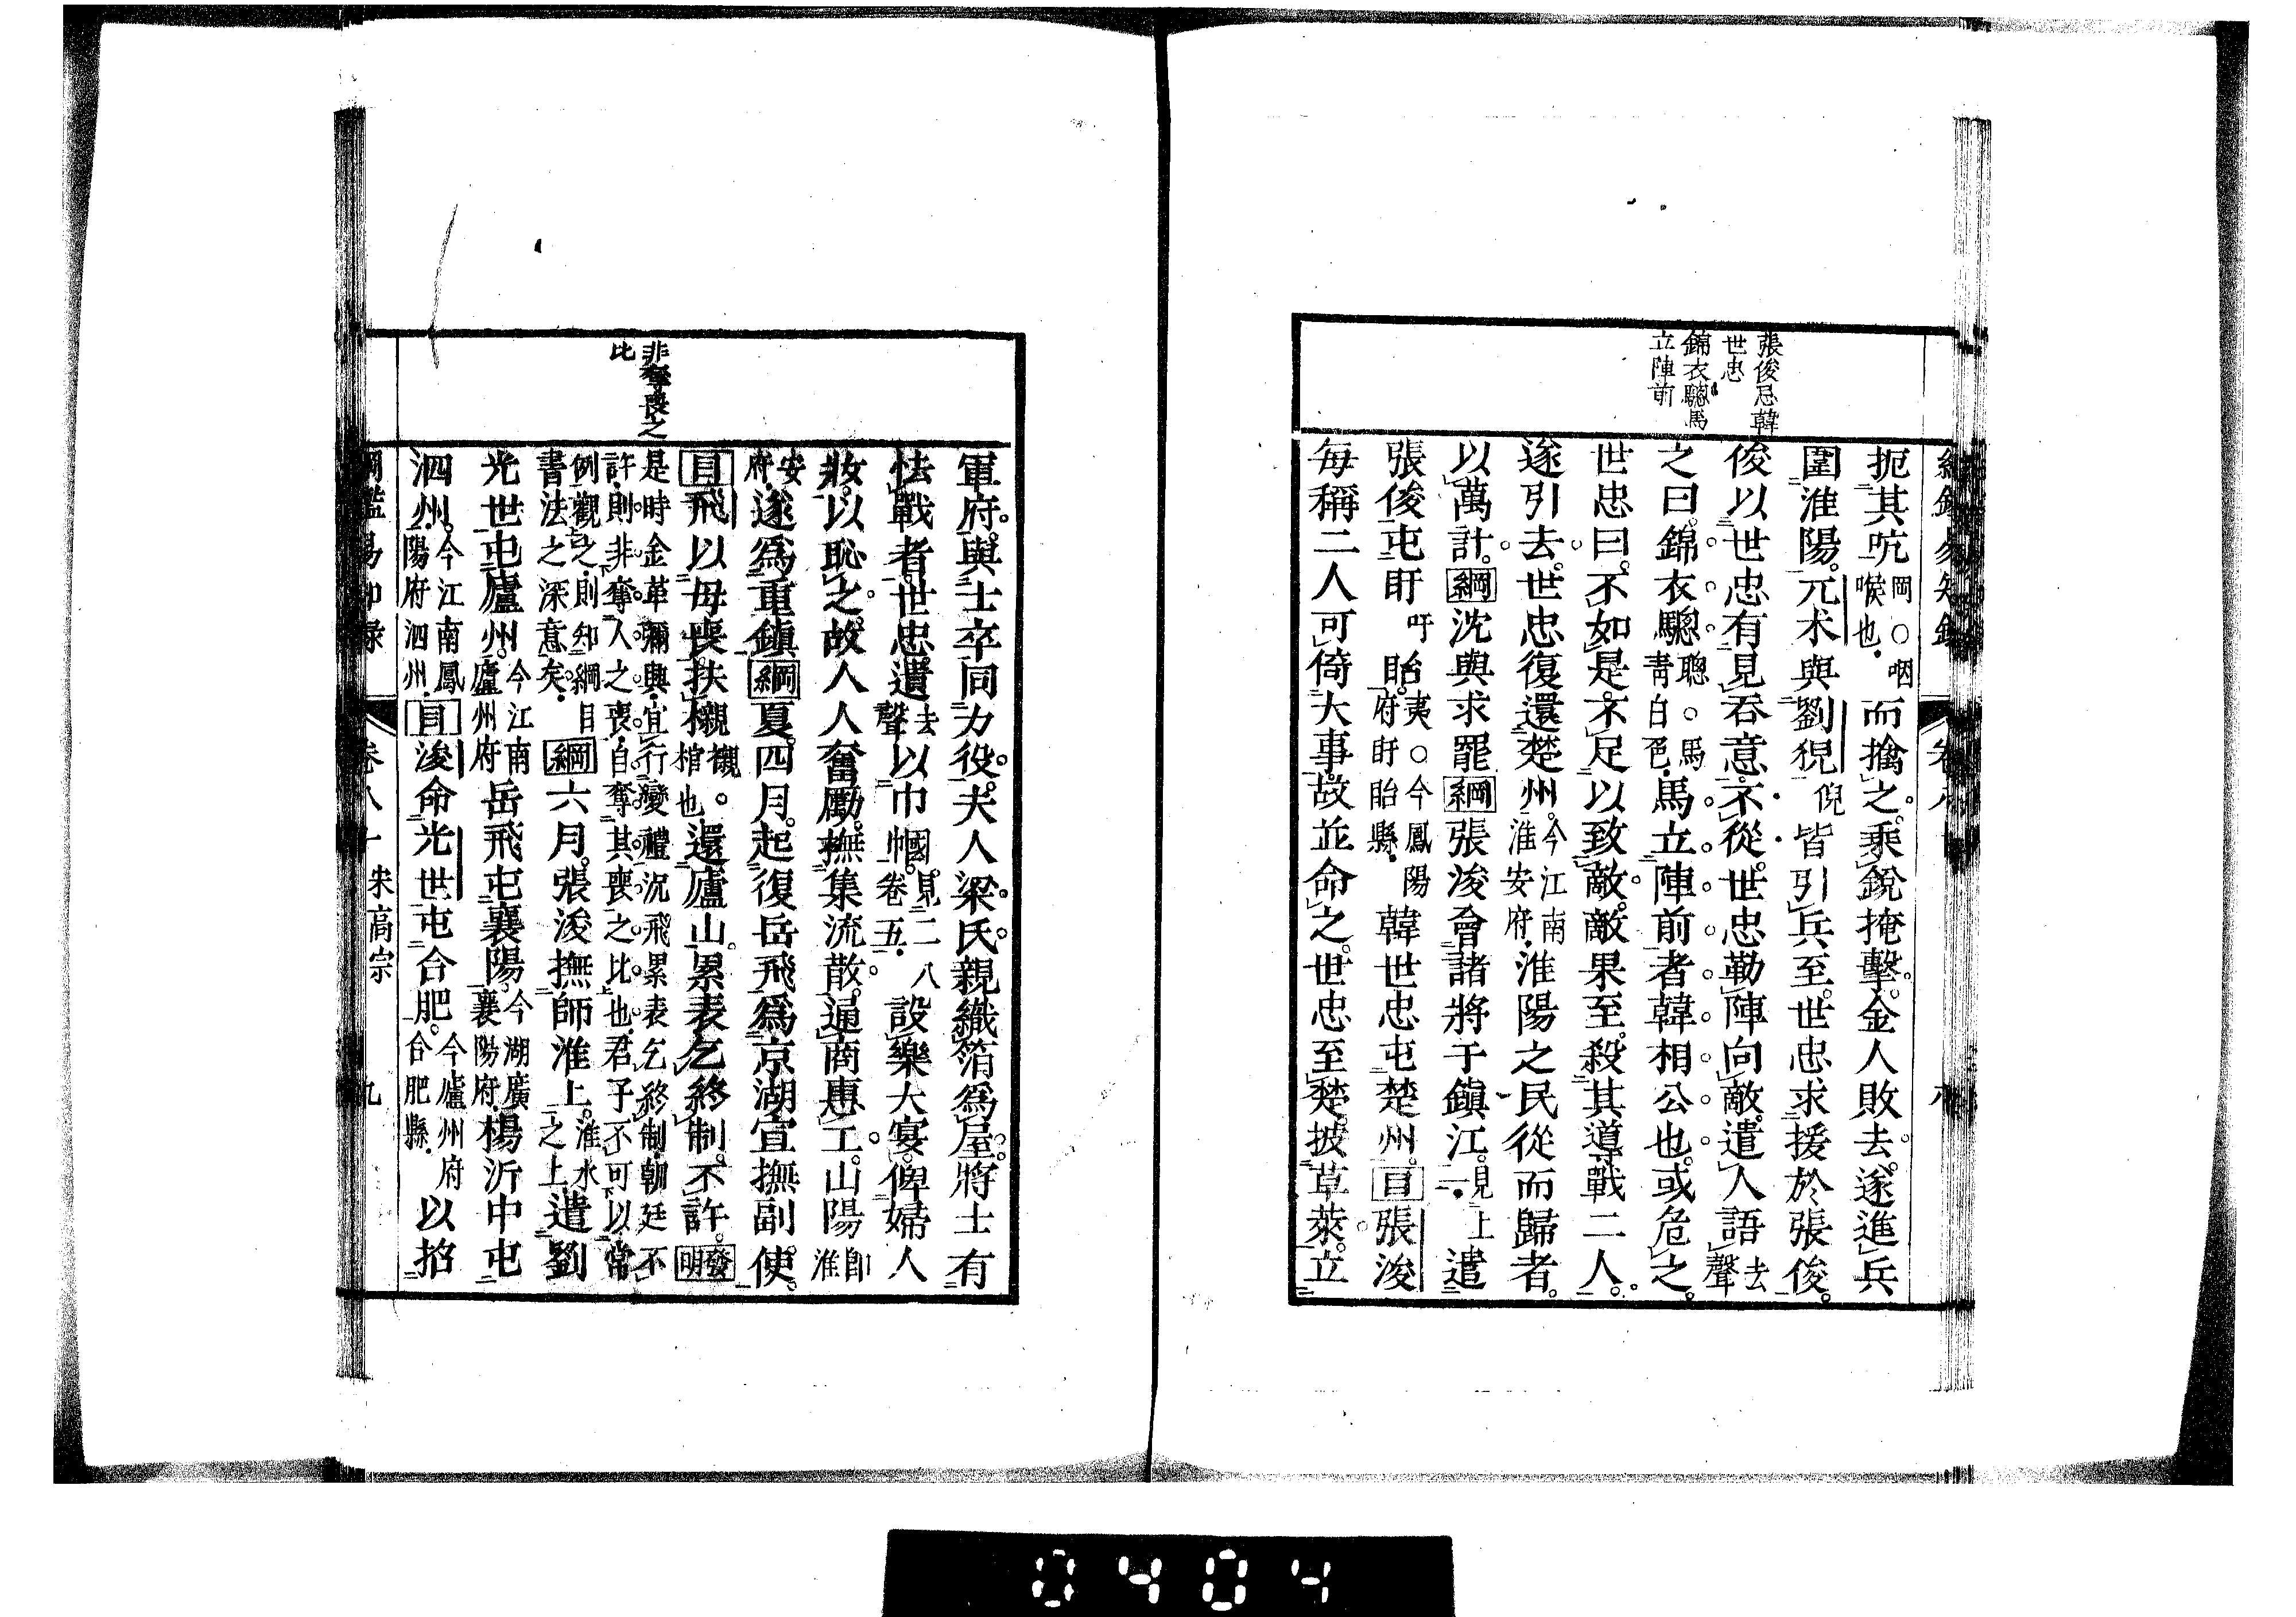 張俊忌韓
世忠
錦衣驄馬
立陣前
扼其吭岡○咽喉也而擒之乘銳掩擊金人敗去遂進兵
圍淮陽元朮與劉猊倪皆引兵至世忠求援於張俊
俊以世忠有見吞意不從世忠勒陣向敵遣人語去聲
之曰錦衣驄聰○馬青白色馬立陣前者韓相公也或危之
世忠曰不如是不足以致敵敵果至殺其導戰二人
遂引去世忠復還楚州今江南淮安府淮陽之民從而歸者
以萬計綱沈與求罷綱張浚會諸將于鎮江見上一遣
張俊屯盱吁眙夷○今鳳陽府盱眙縣韓世忠屯楚州目張浚
每稱二人可倚大事故並命之世忠至楚披草萊立
非奪喪之
比
軍府與士卒同力役夫人梁氏親織箔為屋將士有
怯戰者世忠遺去聲以巾幗國見二八卷五設樂大宴俾婦人
妝以恥之故人人奮勵撫集流散通商惠工山陽即淮
安府遂為重鎮綱夏四月起復岳飛為京湖宣撫副使
目飛以母喪扶櫬襯親棺也還廬山累表乞終制不許發明
是時金革彌興宜行變禮況飛累表乞終制朝廷不
許則非奪人之喪自奪其喪之比也君子不可以常
例觀之則知綱目書法之深意矣綱六月張浚撫師淮上淮水之上遣劉
光世屯廬州今江南廬州府岳飛屯襄陽今湖廣襄陽府楊沂中屯
泗州今江南鳳陽府泗州目浚命光世屯合肥今廬州府合肥縣以招
綱鑑易知錄 卷八十 宋高宗 九
0404